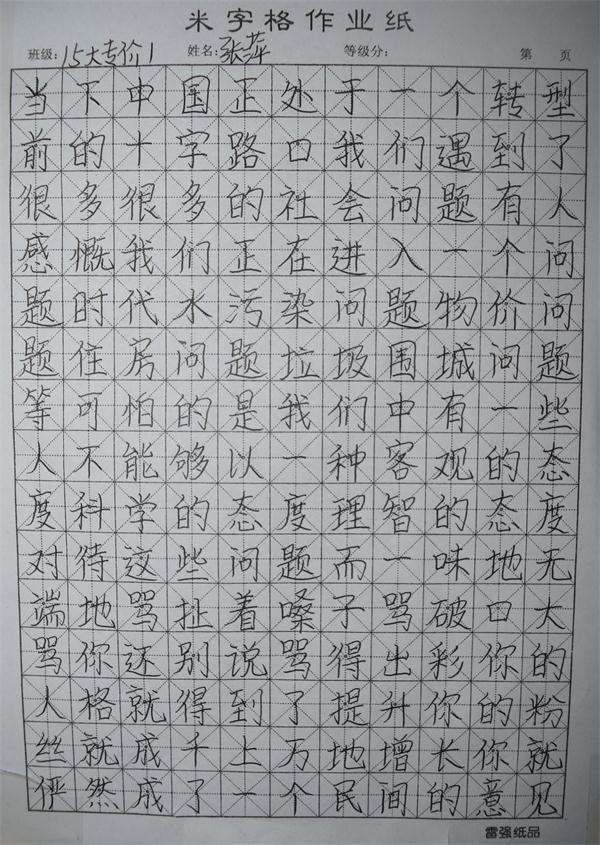 米字格作业纸
班级: 15大专价1 姓名: 张萍 等级分: 第 页
当下中国正处于一个转型
前的十字路口我们遇到了
很多很多的社会问题有人
感慨我们正在进入一个问
题时代水污染问题物价问
题住房问题垃圾围城问题
等可怕的是我们中有一些
人不能够以一种客观的态
度科学的态度理智的态度
对待这些问题而一味地无
端地骂扯着嗓子骂破口大
骂你还别说骂得出彩你的
人格就得到了提升你的粉
丝就成千上万地增长你就
俨然成了一个民间的意见
雷强纸品